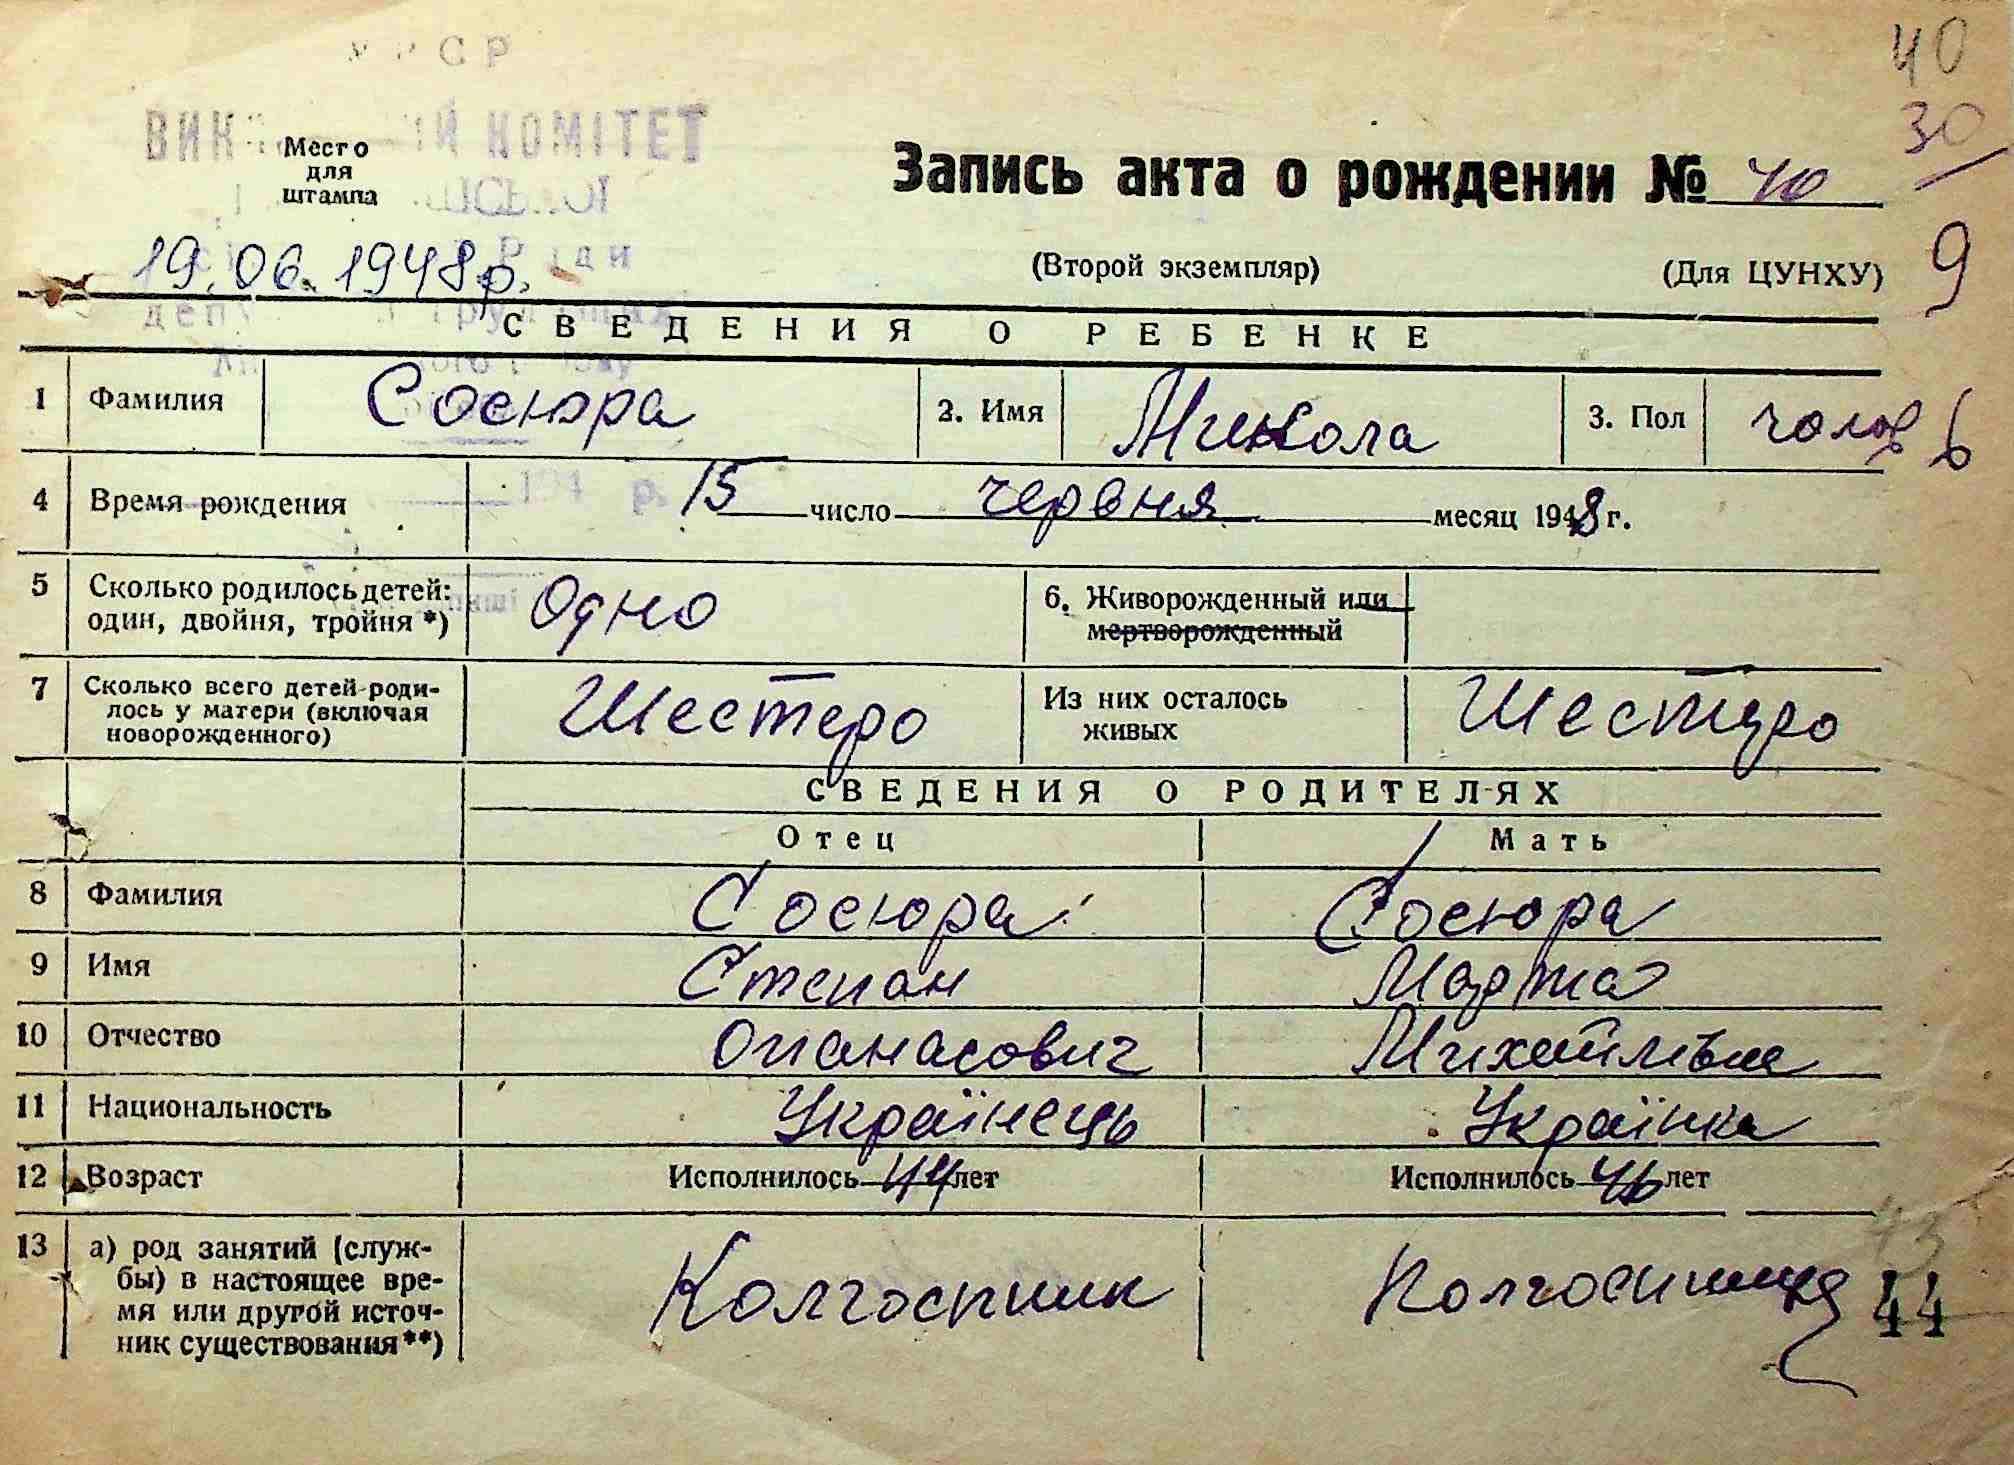 40
30
Р С Р
КОМІТЕТ
Место
для
штампа
Запись акта о рождении № 40
19.06.1948р.
(Второй экземпляр)
(Для ЦУНХУ)
9
СВЕДЕНИЯ О РЕБЕНКЕ
1 Фамилия Сосюра 2. Имя Микола 3. Пол чолов
6
4 Время рождения 15 число червня месяц 1948 г.
5 Сколько родилось детей: один, двойня, тройня *) Одно 6. Живорожденный или мертворожденный
7 Сколько всего детей роди-
лось у матери (включая
новорожденного) Шестеро Из них осталось
живых Шестеро
СВЕДЕНИЯ О РОДИТЕЛЯХ
Отец Мать
8 Фамилия Сосюра Сосюра
9 Имя Степан Марта
10 Отчество Опанасович Михайлівна
11 Национальность Українець Українка
12 Возраст Исполнилось 44 лет Исполнилось 46 лет
43
13 а) род занятий (служ-
бы) в настоящее вре-
мя или другой источ-
ник существования **) Колгоспник Колгоспниця
44